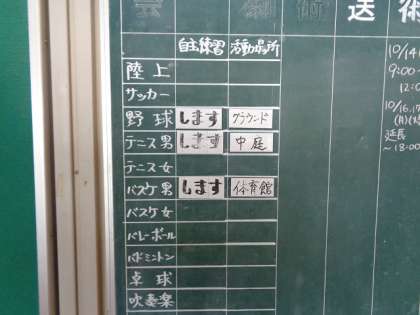 送 術
自主練習 活動場所
陸上
サッカー
野球 します グラウンド
テニス男 します 中庭
テニス女
バスケ男 します 体育館
バスケ女
バレーボール
バドミントン
卓球
吹奏楽
10/14
9:00-
12:0
10/16,17
延長
~18:00